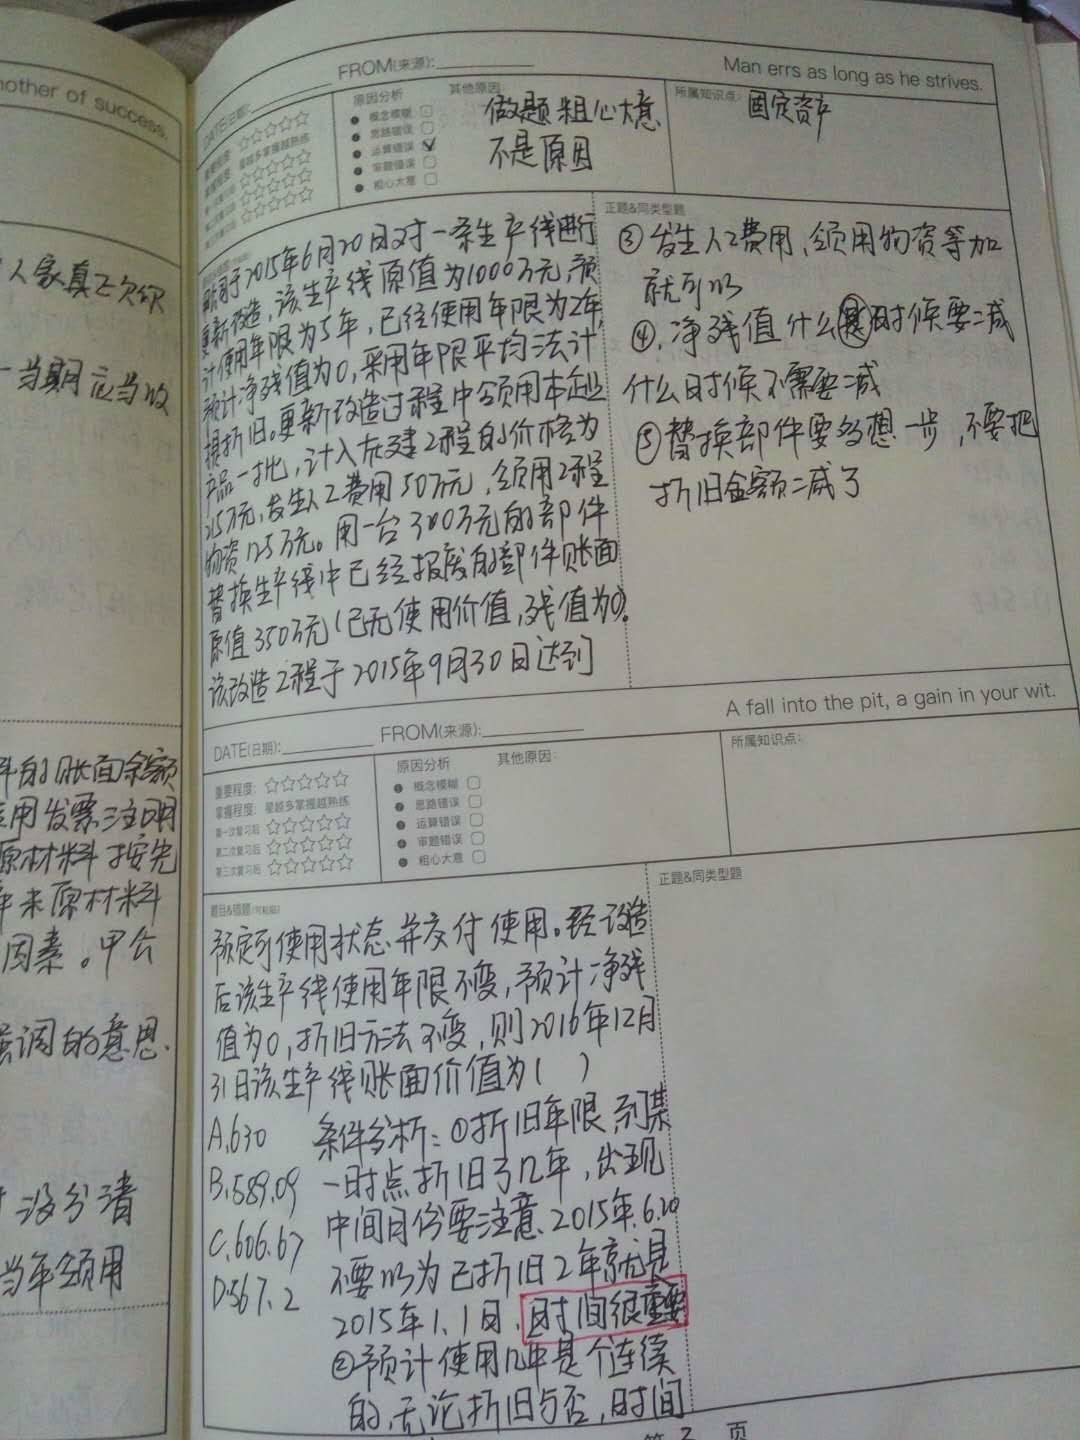 nother of success.
人家真正欠你
一当期应当收
料的账面余额
用发票注明
原材料按先
年末原材料
因素。甲公
强调的意思.
没分清
当年领用
FROM(来源):
Man errs as long as he strives.
DATE(日期):
原因分析
概念模糊
思路错误
运算错误
审题错误
粗心大意
其他原因:
做题粗心大意
不是原因
所属知识点:
固定资产
于2015年6月20日对一条生产线进行
更新改造,该生产线原值为1000万元,预
计使用年限为5年,已经使用年限为2年,
预计净残值为0,采用年限平均法计
提折旧。更新改造过程中领用本企业
产品一批,计入在建工程的价格为
215万元,发生人工费用50万元,领用工程
物资125万元。用一台300万元的部件
替换生产线中已经报废的部件账面
原值350万元(已无使用价值,残值为0)。
该改造工程于2015年9月30日达到
正题&同类型题
③发生人工费用,领用物资等加
就可以
④,净残值什么时候要减
什么时候不需要减
⑤替换部件要多想一步,不要把
折旧金额减了
A fall into the pit, a gain in your wit.
DATE(日期):
FROM(来源):
重要程度:
掌握程度: 星越多掌握越熟练
第一次复习后
第二次复习后
第三次复习后
原因分析
概念模糊
思路错误
运算错误
审题错误
粗心大意
其他原因:
所属知识点:
题目&错题(可粘贴)
预定可使用状态并交付使用。经改造
后该生产线使用年限不变,预计净残
值为0,折旧方法不变,则2016年12月
31日该生产线账面价值为( )
A.630
B.589.09
C.606.67
D.567.2
条件分析:①折旧年限,到某
一时点折旧了几年,出现
中间月份要注意.2015年.6.20
不要以为已折旧2年就是
2015年1.1日,时间很重要
②预计使用几年是个连续
的,无论折旧与否,时间
正题&同类型题